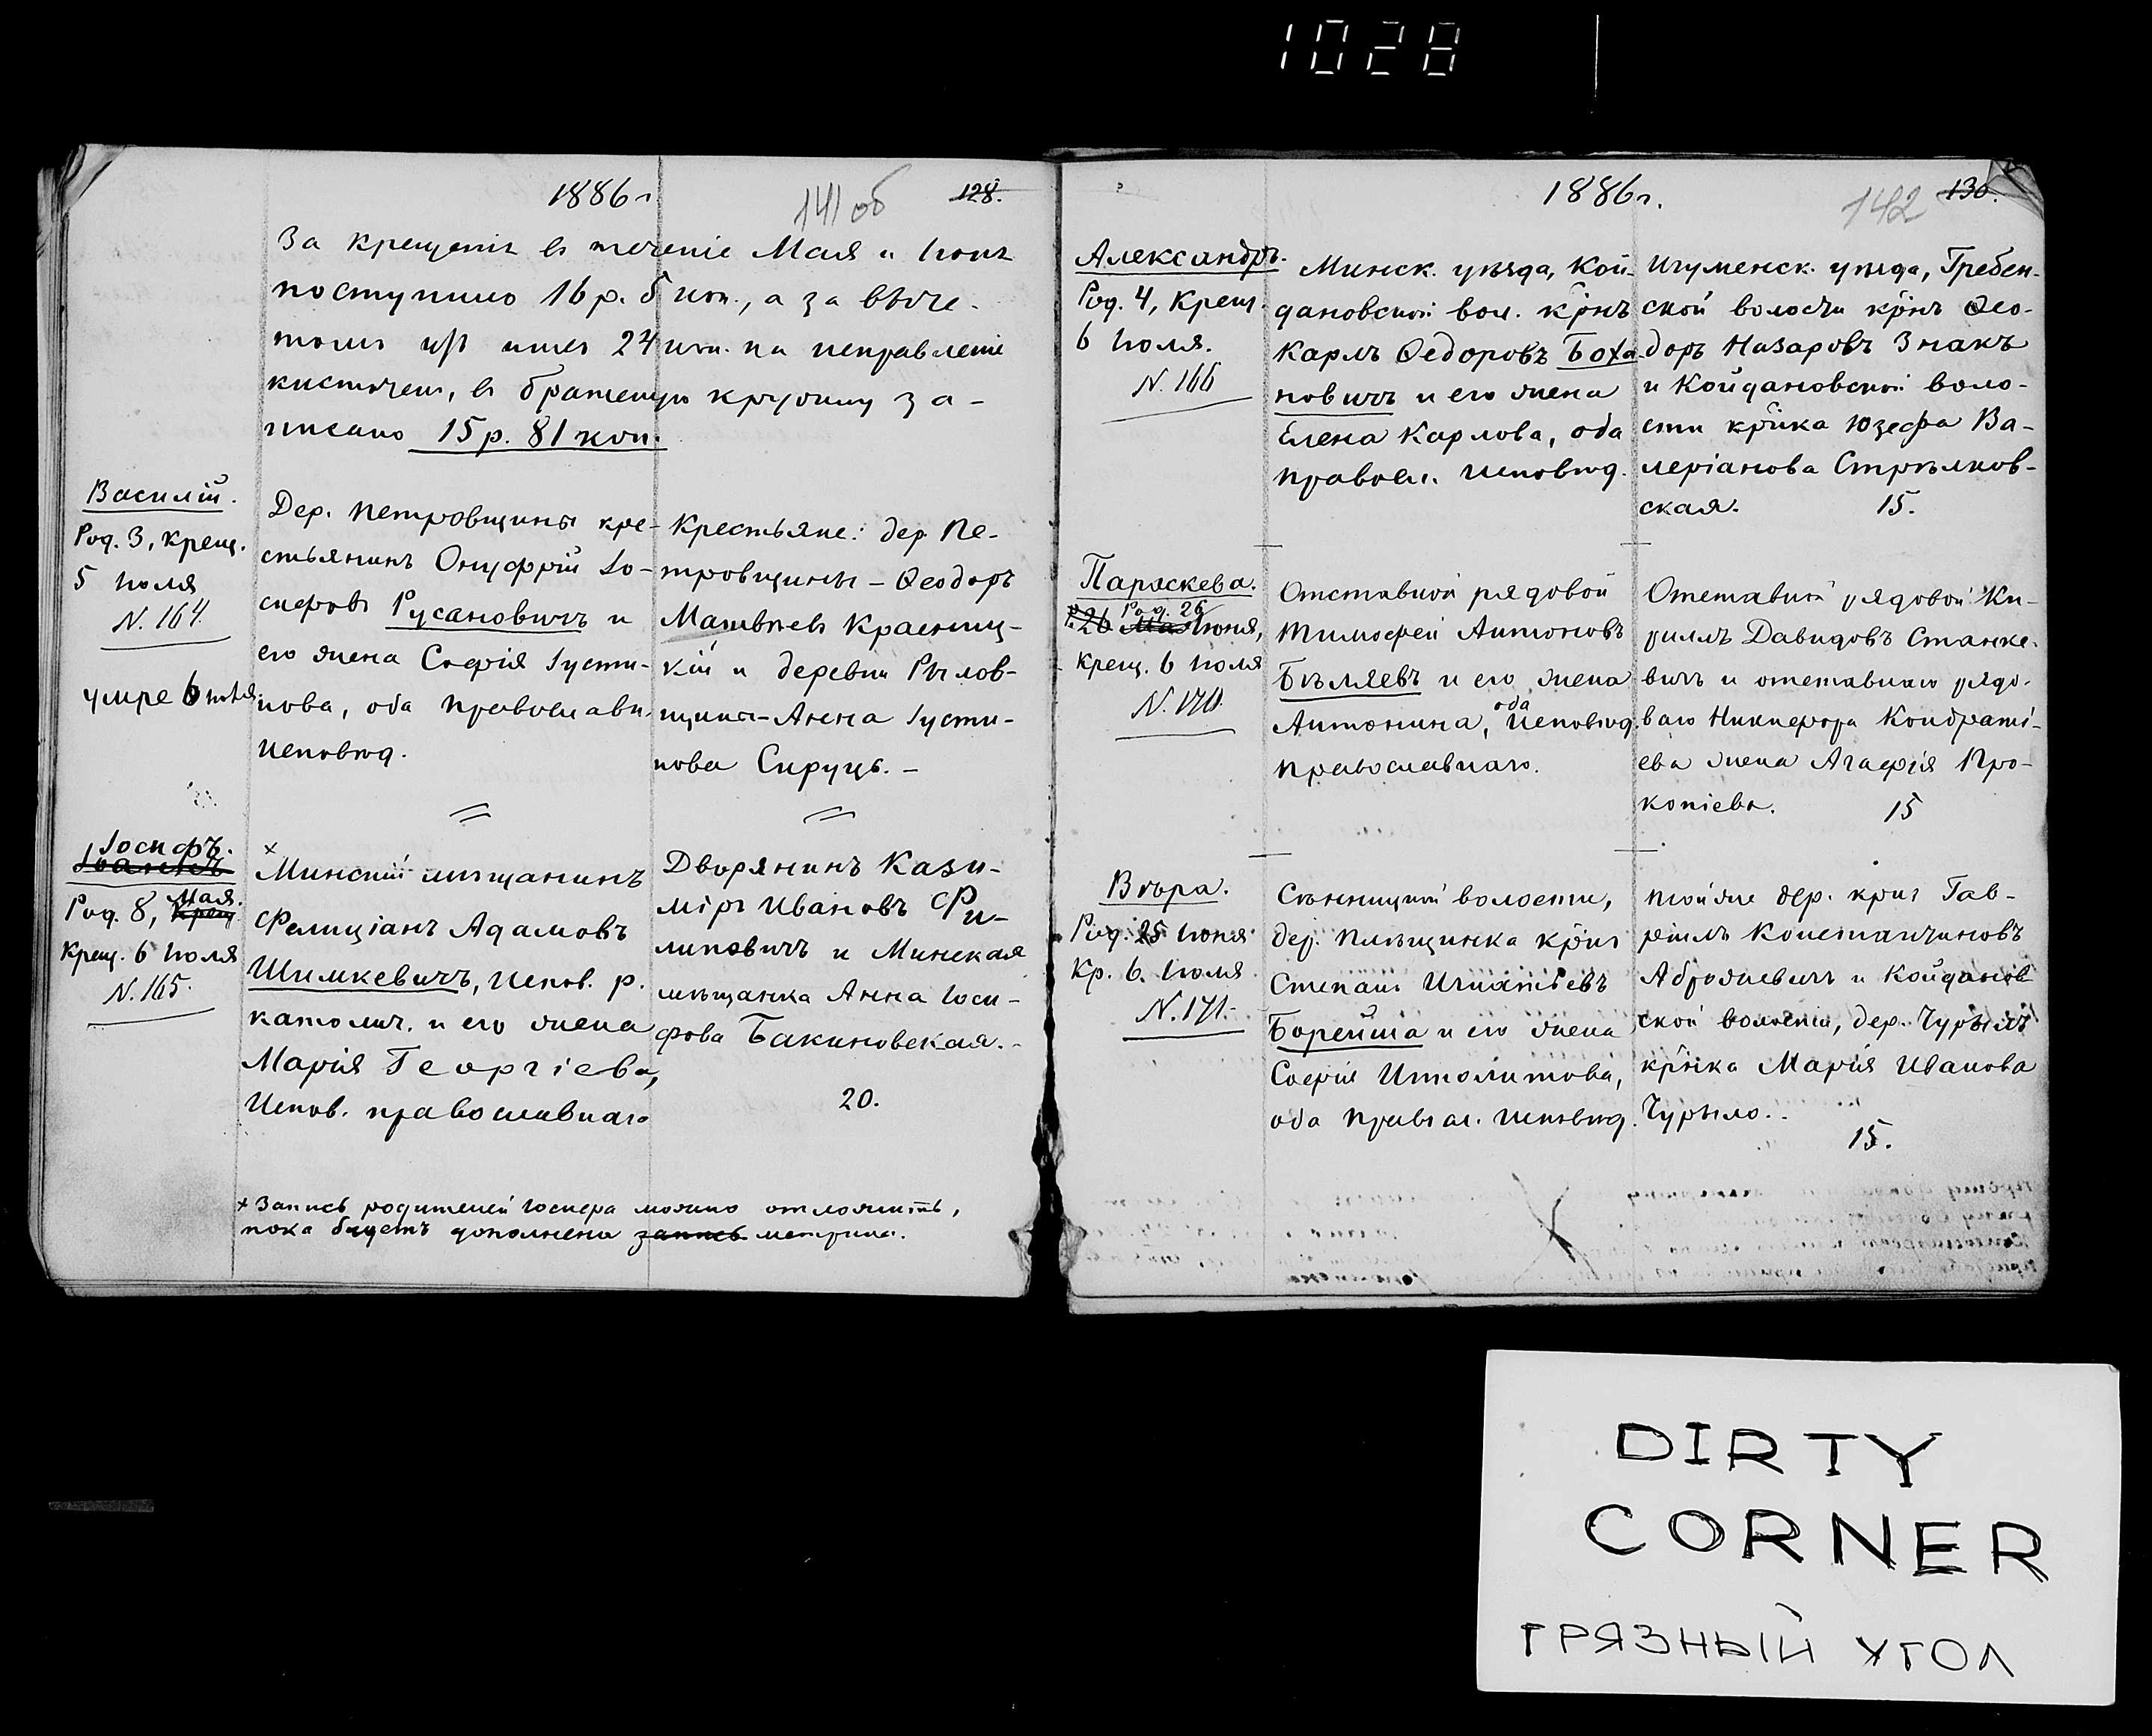 1028
1886 г.
141 об
128.
За крещенія въ теченіе Мая и Іюня
поступило 16 р. 5 коп., а за вычетомъ изъ нихъ 24 коп. на исправленіе
въ братскую кружку за-
писано 15 р. 81 коп.
Василій.
Род. 3, крещ.
5 Іюля
N. 164.
умре 6 Іюля
Дер. Петровщины кре-
стьянинъ Онуфрій Іо-
сифовъ Русановичъ и
его жена Софія Іусти-
нова, оба православн.
исповѣд.
Крестьяне: дер. Пе-
тровщины - Ѳеодоръ
Матвѣевъ Красниц-
кій и деревни Рылов-
щина - Анна Іусти-
нова Сируць. -
Іосифъ.
Іоаннъ
Род. 8, Мая.
Крещ
Крещ. 6 Іюля
N. 165.
× Минскій мѣщанинъ
Фелиціанъ Адамовъ
Шимкевичъ, испов. р.
католич. и его жена
Марія Георгіева,
Испов. православнаго
Дворянинъ Кази-
міръ Ивановъ Фи-
липовичъ и Минская
мѣщанка Анна Іоси-
фова Бакиновская. -
20.
× Запись родителей Іосифа можно отложить,
пока будетъ дополнена запись метрика.
1886 г.
142
130.
Александръ.
Род. 4, Крещ.
6 Іюля.
N. 166
Минск. уѣзда, Кой-
дановской вол. крнъ
Карлъ Ѳедоровъ Боха-
новичъ и его жена
Елена Карлова, оба
правосл. исповѣд.
Игуменск. уѣзда, Гребен-
ской волости крнъ Ѳео-
доръ Назаровъ Знакъ
и Койдановской воло-
сти крнка Юзефа Ва-
леріанова Стрѣлков-
ская. 15.
Параскева.
Род. 26
Р. 26 Мая Іюня,
крещ. 6 Іюля
N. 170.
Отставной рядовой
Тимофей Антоновъ
Бѣляевъ и его жена
оба
Антонина, исповѣд.
православнаго.
Отставной рядовой Ки-
риллъ Давидовъ Станке-
вичъ и отставнаго рядо-
ваго Никифора Кондраті-
ева жена Агафія Про-
копіева. 15
Вѣра.
Род. 25 Іюня
Кр. 6. Іюля
N. 171.
Сенницкой волости,
дер. крнъ
Степанъ Игнатіевъ
Борейша и его жена
Софія Ипполитова,
оба правосл. исповѣд.
той же дер. крнъ Гав-
ріилъ Константиновъ
Аброжевичъ и Койданов
ской волости, дер. Чурилъ
крнка Марія Иванова
Чурыло. -
15.
DIRTY
CORNER
ГРЯЗНЫЙ УГОЛ